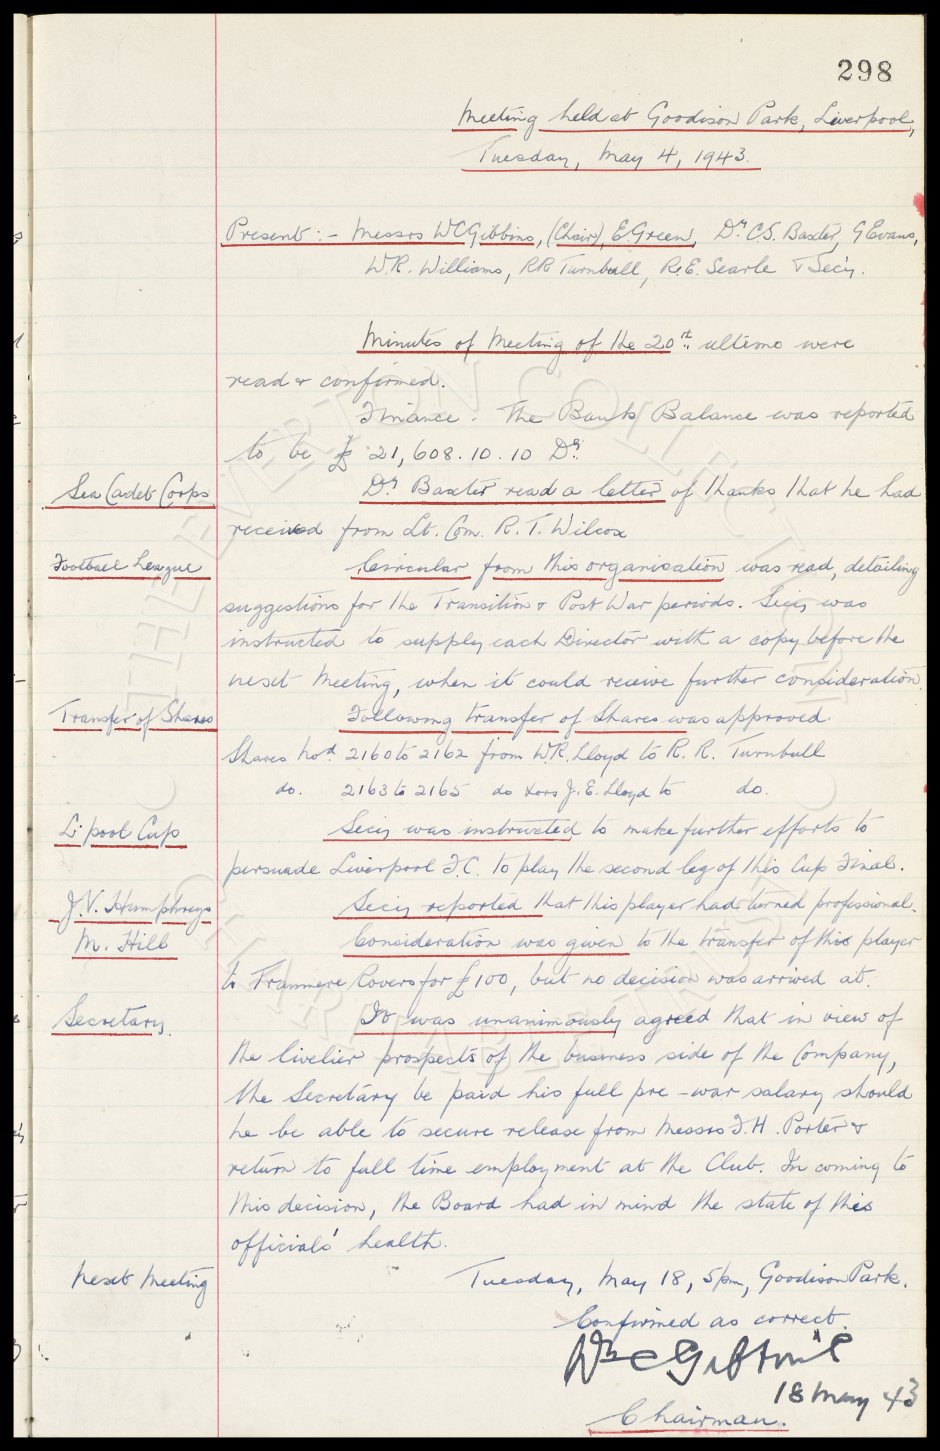 298
Meeting held at Goodison Park, Liverpool,
Tuesday, May 4, 1943.
Present:- Messrs W C Gibbins, (Chair), E. Green, Dr. C. S. Baxter, G Evans,
W. R. Williams, R R Turnbull, R. E. Searle & Sec'y.
Minutes of Meeting of the 20th ultimo were
read & confirmed.
Finance. The Bank Balance was reported
to be £21,608.10.10 Dr.
Sea Cadet Corps
Dr Baxter read a letter of thanks that he had
received from Lt. Com. R. T. Wilcox
Football League
Circular from this organisation was read, detailing
suggestions for the Transition & Post War periods. Secy was
instructed to supply each Director with a copy before the
next Meeting, when it could receive further consideration.
Transfer of Shares
Following transfer of Shares was approved.
Shares Nod. 2160 to 2162 from W. R. Lloyd to R. R. Turnbull
do. 2163 to 2165 do J. E. Lloyd to do.
L'pool Cup
Secy was instructed to make further efforts to
persuade Liverpool F.C. to play the second leg of this Cup Final.
J. V. Humphreys
Secy reported that this player had turned professional.
M. Hill
Consideration was given to the transfer of this player
to Tranmere Rovers for £100, but no decision was arrived at.
Secretary.
It was unanimously agreed that in view of
the livelier prospects of the business side of the Company,
the Secretary be paid his full pre-war salary should
he be able to secure release from Messrs F. H. Porter &
return to full time employment at the Club. In coming to
this decision, the Board had in mind the state of this
officials' health.
Next Meeting
Tuesday, May 18, 5pm, Goodison Park.
Confirmed as correct.
Wm C Gibbins
18 May 43
Chairman.
THE EVERTON COLLECTION
CHARITABLE TRUST